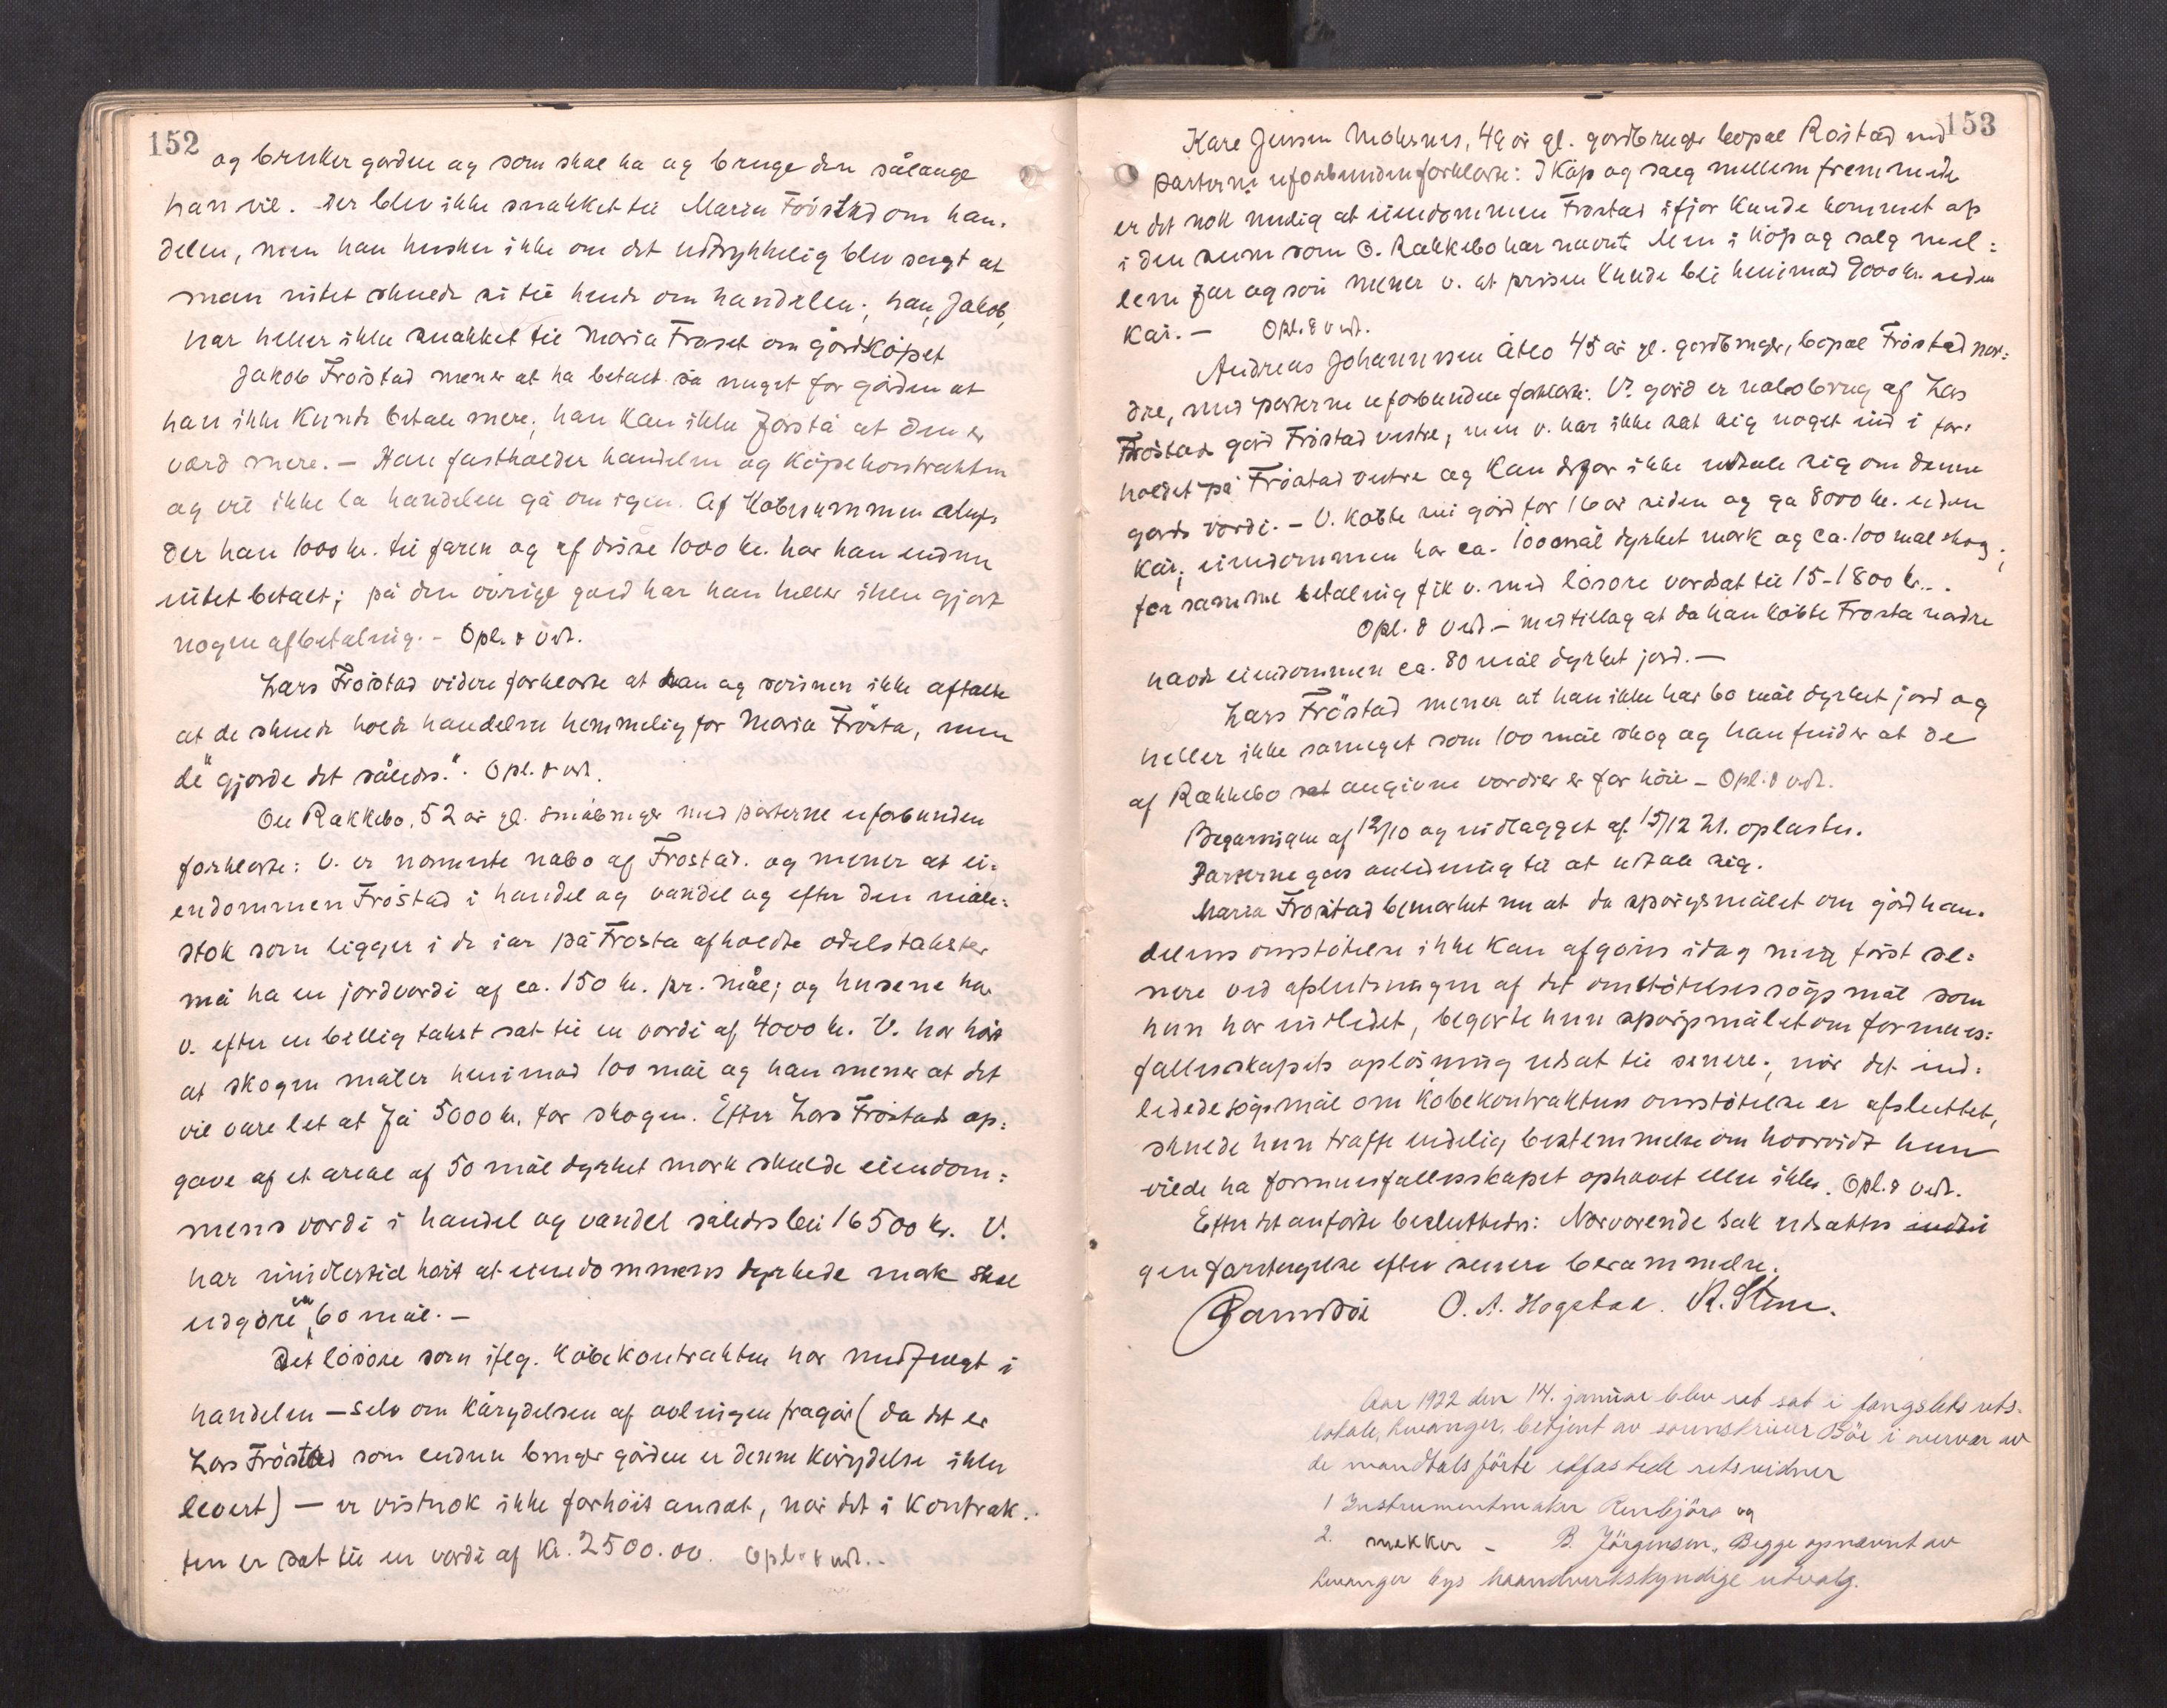 152
og bruker gården og som skal ha og bruge den sålænge
han vil. Der blev ikke snakket til Maria Fröstad om han-
delen, men han husker ikke om det udtrykkelig blev sagt at
man intet skulde si til hende om handelen; han, Jakob,
har heller ikke snakket til Maria om gårdköpet
Jakob Fröstad mener at ha betalt så meget for gården at
han ikke kunde betale mere; han kan ikke forstå at den er
værd mere. – Han fastholder handelen og köpekontrakten
og vil ikke la handelen gå om igen. Af köbesummen
der han 1000 kr. til faren og af disse 1000 kr. har han endnu
intet betalt; på den övrige gæld har han heller ikke gjort
nogen afbetaling. – Opl. & ved.
Lars Fröstad videre forklarte at han og sönnen ikke aftalte
at de skulde holde handelen hemmelig for Maria Frösta, men
de "gjorde det således." Opl. & ved.
Ole Rækkebo, 52 år gl. småbruger med parterne uforbunden
forklarte: V. er nærmeste nabo af Fröstad og mener at ei-
endommen Fröstad i handel og vandel og efter den måle-
stok som ligger i de iår på Frosta afholdte odelstakster
må ha en jordværdi af ca. 150 kr. pr. mål; og husene har
v. efter en billig takst sat til en værdi af 4000 kr. V. har hört
at skogen måler henimod 100 mål og han mener at det
vil være let at få 5000 kr. for skogen. Efter Lars Fröstads op-
gave af et areal af 50 mål dyrket mark skulde eiendom-
mens værdi i handel og vandel således bli 16500 kr. V.
har imidlertid hört at eiendommens dyrkede mark skal
udgöre ca 60 mål. –
Det lösöre som ifлg. köbekontrakten har medfulgt i
handelen – selv om kårydelsen af avlingen fragår (da det er
Lars Fröstad som endnu bruger gården er denne kårydelse ikke
levert) – er vistnok ikke forhöit ansat, når det i kontrak-
ten er sat til en værdi af kr. 2500.00. Opl. & ved. –
153
Kare Jensen, 49 år gl. gårdbruger bopæl Röstad med
parterne uforbunden forklarte: I köp og salg mellem fremmede
er det nok mulig at eiendommen Fröstad ifjor kunde kommet op
i den sum som O. Rækkebo har nævnt. Men i köp og salg mel-
lem far og sön mener v. at prisen kunde bli henimod 9000 kr. uden
kår. – Opl. & ved.
Andreas Johannesen Åtlo 45 år gl. gårdbruger, bopæl Fröstad nor-
dre, med parterne uforbunden forklarte: V's gård er nabobrug af Lars
Fröstads gård Fröstad vestre, men v. har ikke sat sig noget ind i for-
holdet på Fröstad vestre og kan derfor ikke udtale sig om denne
gårds værdi. – V. köbte sin gård for 16 år siden og ga 8000 kr. uden
kår; eiendommen har ca. 100 mål dyrket mark og ca. 100 mål skog;
for samme betaling fik v. med lösöre værdsat til 15–1800 kr. .
Opl. & ved – med tillæg at da han köbte Frosta nordre
havde eiendommen ca. 80 mål dyrket jord. –
Lars Fröstad mener at han ikke har 60 mål dyrket jord og
heller ikke sameget som 100 mål skog og han finder at de
af Rækkebo angivne værdier er for höie – Opl. & ved.
Begæringen af 12/10 og indlægget af 15/12 21. oplæstes.
Parterne gas anledning til at udtale sig.
Maria Fröstad bemærket nu at da spörgsmålet om gårdhan-
delens omstötelse ikke kan afgöres idag men först se-
nere ved afslutningen af det omstötelsessögsmål som
hun har indledet, begærte hun spörgsmålet om formues-
fællesskapets oplösning udsat til senere; når det ind-
ledede sögsmål om köbekontraktens omstötelse er afsluttet,
skulde hun træffe endelig bestemmelse om hvorvidt hun
vilde ha formuesfællesskapet ophævet eller ikke. Opl. & ved.
Efter det anförte besluttedes: Nærværende sak udsættes
gen foretagelse efter senere berammelse.
O. A. Hogstad. R. Stene.
Aar 1922 den 14. januar blev ret sat i fængslets rets-
lokale, Levanger, betjent av sorenskriver Böe i overvær av
de mandtalsförte edfæstede retsvidner
1 Instrumentmaker Renbjör og
2. snekker – B. Jörgensen, Begge opnævnt av
Levanger bys haandverkskyndige utvalg.